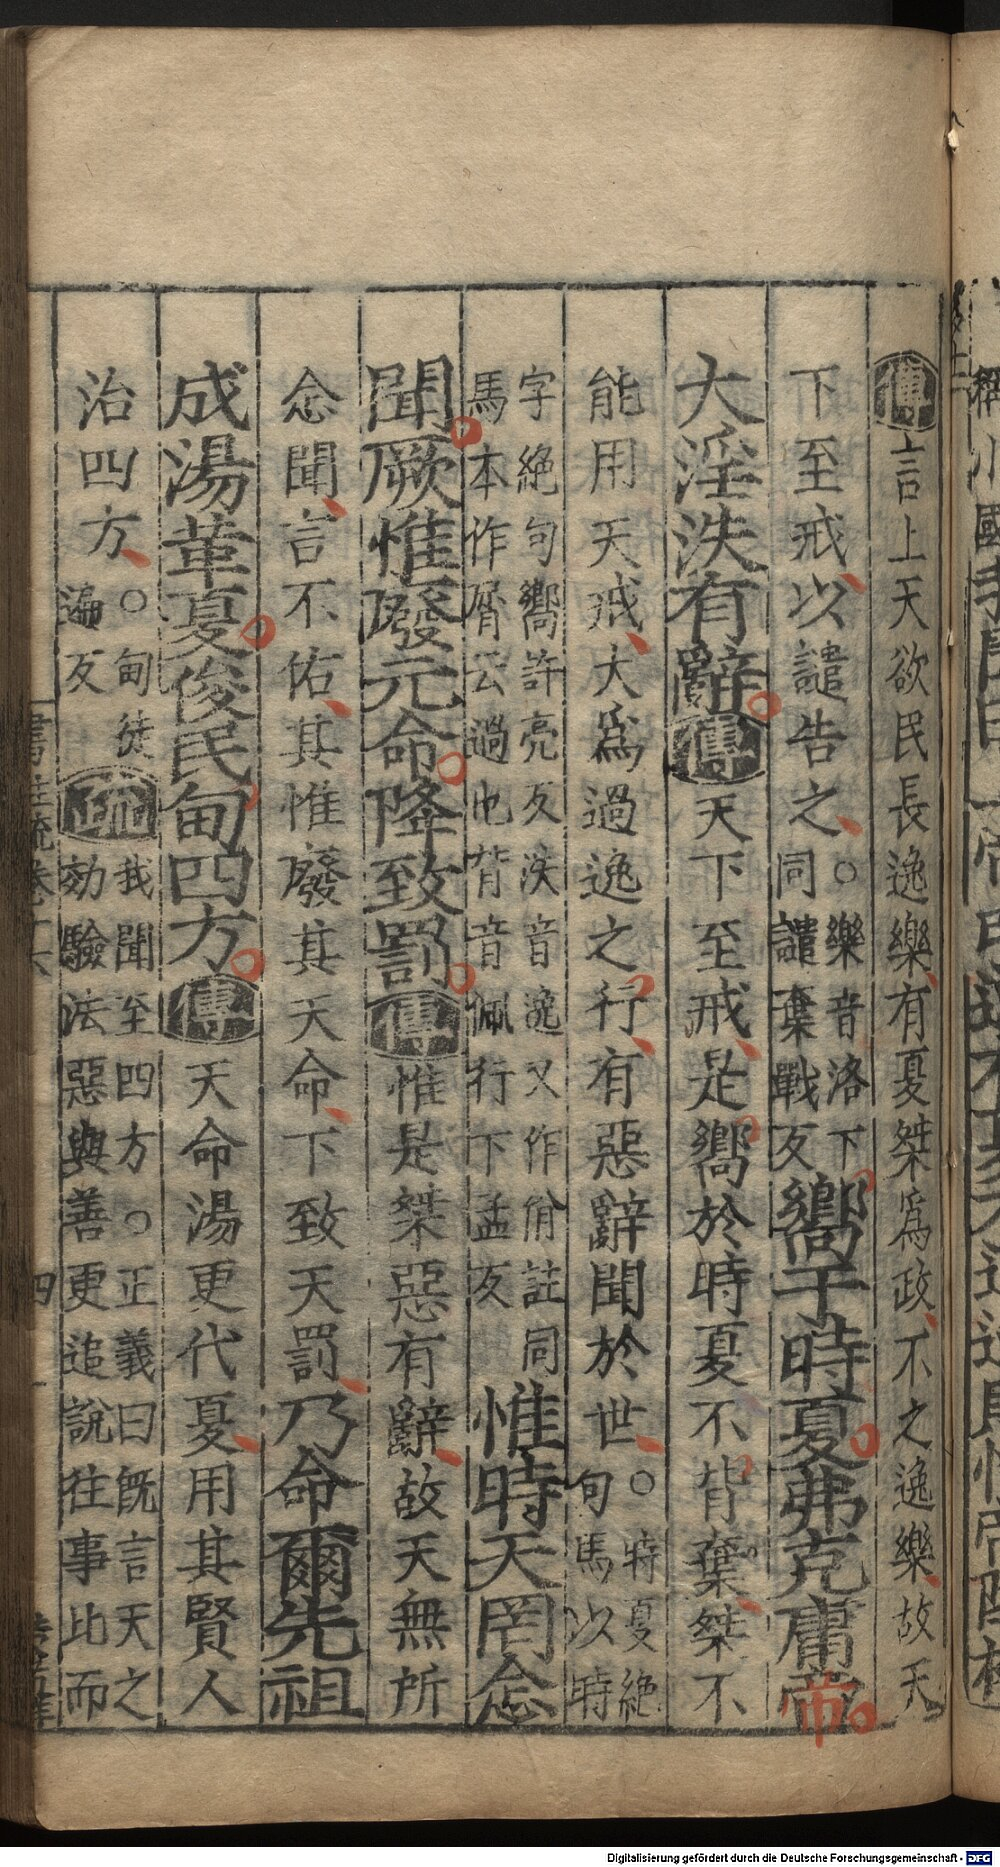 傳言上天欲民長逸樂有夏桀爲政不之逸樂故天
下至戒以譴告之○樂音洛下同譴棄戰反嚮于時夏弗克庸帝
大淫泆有辭傳天下至戒是嚮於時夏不背棄桀不
能用天戒大爲過逸之行有惡辭聞於世○時夏絕句馬以時
字絕句嚮許亮反泆音逸又作佾註同馬本作屑云過也背音佩行下孟反惟時天罔念
聞厥惟廢元命降致罰傳惟是桀惡有辭故天無所
念聞言不佑其惟廢其天命下致天罰乃命爾先祖
成湯革夏俊民甸四方傳天命湯更代夏用其賢人
治四方○甸徒遍反疏我聞至四方○正義曰既言天之効驗法惡與善更追說往事比而
書註疏卷十六
四
Digitalisierung gefördert durch die Deutsche Forschungsgemeinschaft - DFG